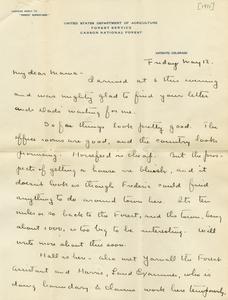 [1911]
ADDRESS REPLY TO
"FOREST SUPERVISOR"
UNITED STATES DEPARTMENT OF AGRICULTURE
FOREST SERVICE
CARSON NATIONAL FOREST
ANTONITO, COLORADO
Friday May 12.
My dear Mama -
I arrived at 6 this evening
and was mighty glad to find your letter
and Dads' waiting for me.
So far things look pretty good. The
office rooms are good, and the country looks
promising. Horsefeed is cheap. But the pros-
pects of getting a house are bluish, and it
doesn't look as though Frederic could find
anything to do around town here. It's ten
miles or so back to the Forest, and the town, being
about 1000, is too big to be interesting. Will
write more about this soon.
Hall is here - also met Yarnall the Forest
Assistant and Harris, Land Examiner, who is
doing boundary & claims work here temporarily.